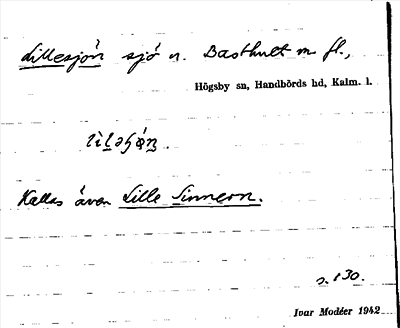 Lillesjön sjö n. Basthult m fl.,
Högsby sn, Handbörds hd, Kalm. l.
Kallas även Lille Sinnern.
s. 130.
Ivar Modéer 1942